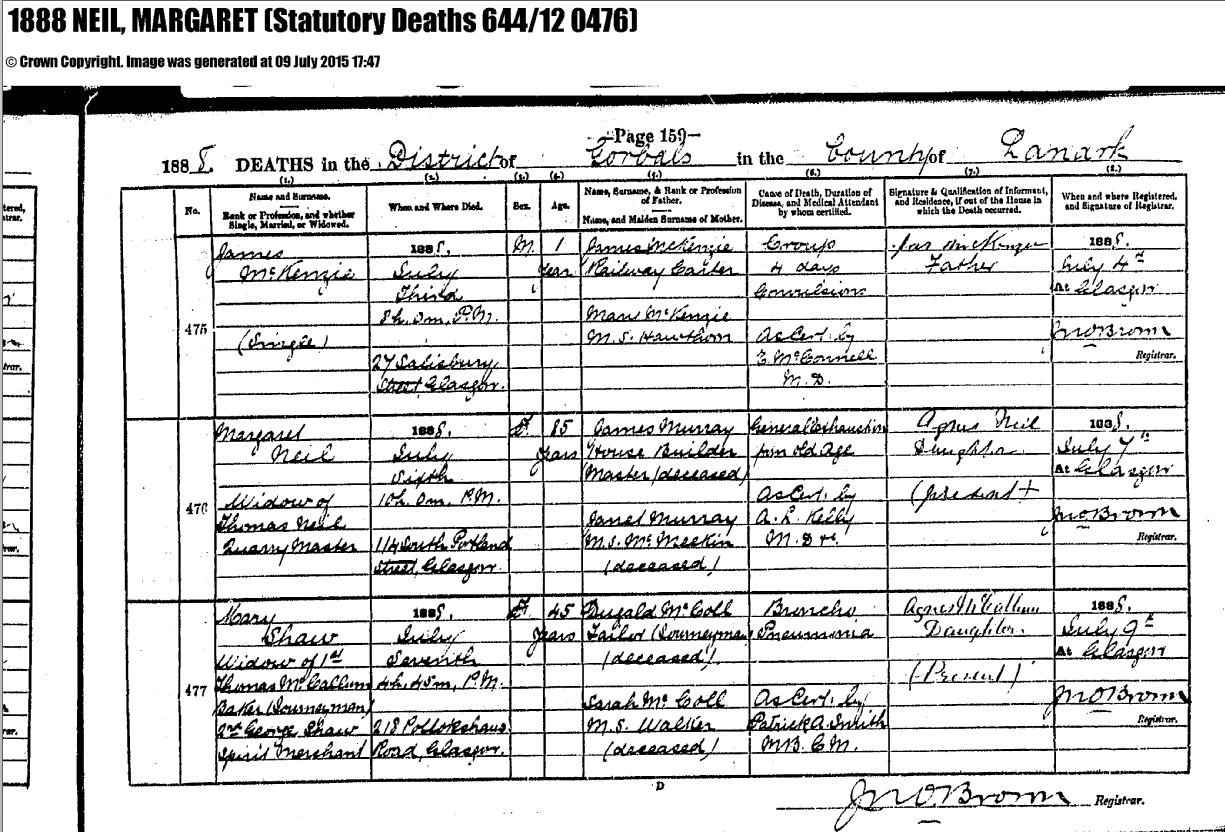 1888 NEIL, MARGARET (Statutory Deaths 644/12 0476)
© Crown Copyright. Image was generated at 09 July 2015 17:47
-Page 159-
1888. DEATHS in the District of Gorbals in the County of Lanark
(1.) (2.) (3.) (4.) (5.) (6.) (7.) (8.)
No.
Name and Surname.
Rank or Profession, and whether
Single, Married, or Widowed.
When and Where Died.
Sex.
Age.
Name, Surname, & Rank or Profession
of Father.
Name, and Maiden Surname of Mother.
Cause of Death, Duration of
Disease, and Medical Attendant
by whom certified.
Signature & Qualification of Informant,
and Residence, if out of the House in
which the Death occurred.
When and where Registered,
and Signature of Registrar.
475
James
McKenzie
(Single)
1888.
July
Third
8h. 0m. P.M.
27 Salisbury
Street, Glasgow.
M.
1
Year
James McKenzie
Railway Carter
Mary McKenzie
M.S. Hawthorn
Croup
4 days
Convulsions
As Cert. by
McConnell
M.D.
Jas McKenzie
Father
1888.
July 4th
At Glasgow
Jno Brown
Registrar.
476
Margaret
Neil
Widow of
Thomas Neil
Quarry Master
1888.
July
Sixth
10h. 0m. P.M.
114 South Portland
Street, Glasgow.
F.
85
Years
James Murray
House Builder
Master (deceased)
Janet Murray
M.S. McMeekin
(deceased)
General Exhaustion
from old Age
As Cert. by
A. L. Kelly
M.D &c.
Agnes Neil
Daughter
(present)
1888.
July 7th
At Glasgow
Jno Brown
Registrar.
477
Mary
Shaw
Widow of 1st
Thomas McCallum
Baker (Journeyman)
2nd George Shaw
Spirit Merchant
1888.
July
Seventh
4h. 45m. P.M.
218 Pollokshaws
Road, Glasgow.
F.
45
Years
Dugald McColl
Tailor (Journeyman)
(deceased)
Sarah McColl
M.S. Walker
(deceased)
Broncho
Pneumonia
As Cert. by
Patrick A. Smith
M.B. C.M.
Agnes McCallum
Daughter.
(Present)
1888.
July 9th
At Glasgow
Jno Brown
Registrar.
D
Jno Brown Registrar.